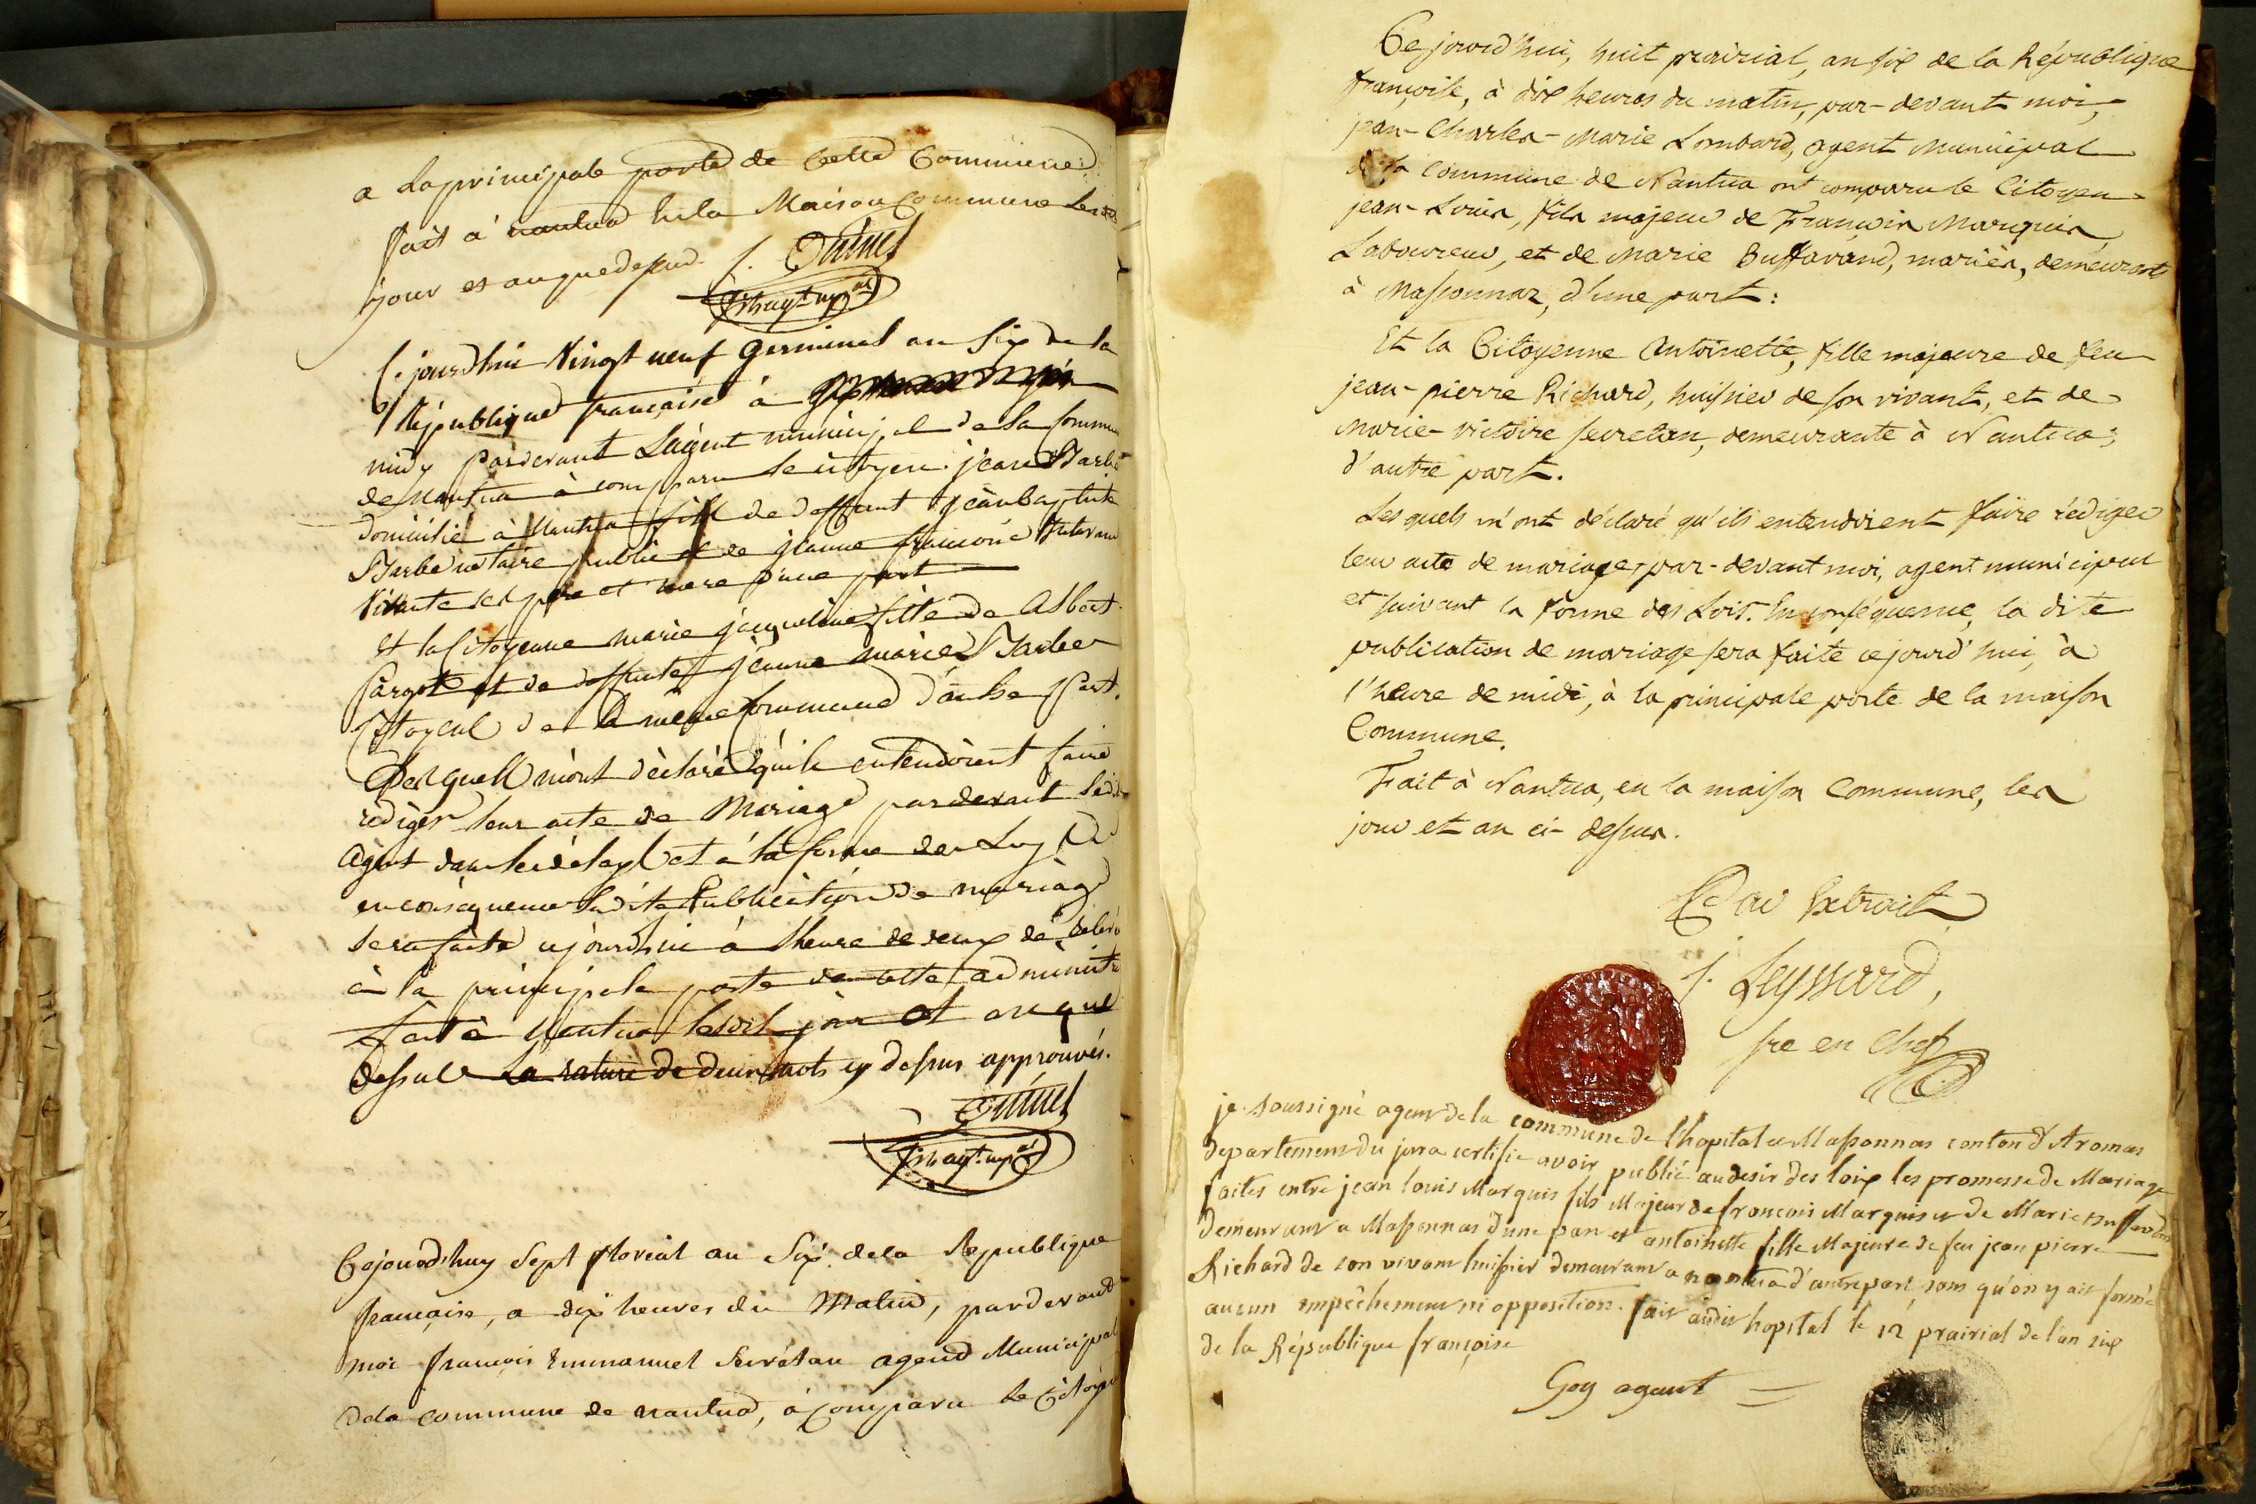 a la principale porte de cette Commune.
fait à nantua en la Maison Commune les
jour et an que dessus.
Ce jourdhui Vingt neuf Germinal an Six de la
République française à
midy pardevant Lagent municipal de la Commune
de nantua à comparu le citoyen jean Barbe
domicilié à Nantua fils de deffunt jean baptiste
Barbe notaire public et de jeanne françoise
Vivante ses père et mere d'une part
Et la Citoyenne marie jacqueline fille de Albert
et de deffunte jeanne marie Barbe
de la même Commune d'autre Part.
Lesquels m'ont déclaré quils entendoient faire
rédiger leur acte de Mariage pardevant ledit
Agent dans les délays et à la forme des Loys
en conséquence ladite Publication de mariage
sera faite cejourdhui à l'heure de deux de
à la principale porte de cette administ
fait à Nantua lesdits jour et an que
dessus La rature de deux mots cy dessus approuvés.
Cejourdhuy Sept floréal an Six de la République
française, a dix heures du Matin, pardevant
moi françois Emmanuel Secrétan agent Municipal
de la commune de nantua, à comparu le Citoyen
Cejourd'hui, huit prairial, an six de la République
françoise, à dix heures du matin, par-devant moi,
jean-Charles-Marie Lombard, agent Municipal
de la Commune de Nantua ont comparu le Citoyen
jean-Louis, fils majeur de François Marquis,
Laboureur, et de Marie Buffavand, mariés, demeurant
à Massonnaz, d'une part:
Et la Citoyenne Antoinette, fille majeure de feu
jean-pierre Richard, huissier de son vivant, et de
Marie-victoire secretan, demeurante à Nantua;
d'autre part.
Lesquels m'ont déclaré qu'ils entendoient faire rédiger
leur acte de mariage, par-devant moi, agent municipal
et suivant la forme des Lois. En conséquence, la dite
publication de mariage sera faite cejourd'hui, à
l'heure de midi, à la principale porte de la maison
Commune.
Fait à Nantua, en la maison Commune, les
jour et an ci-dessus.
Par Extrait
j. Leyssard,
sre en Chef
je soussigné agent de la commune de lhopital et Massonnas canton d'Aromas
departement du jura certifie avoir publié au desir des loix les promesse de Mariage
faites entre jean louis Marquis fils Majeur de francois Marquis et de Marie
demeurant a Massonnas dune part et antoinette fille Majeure de feu jean pierre
Richard de son vivant huissier demeurant a nantua d'autre part, sans qu'on y ait formé
aucun empêchement ni opposition. fait audit hopital le 12 prairial de l'an six
de la République françoise
Goy agent